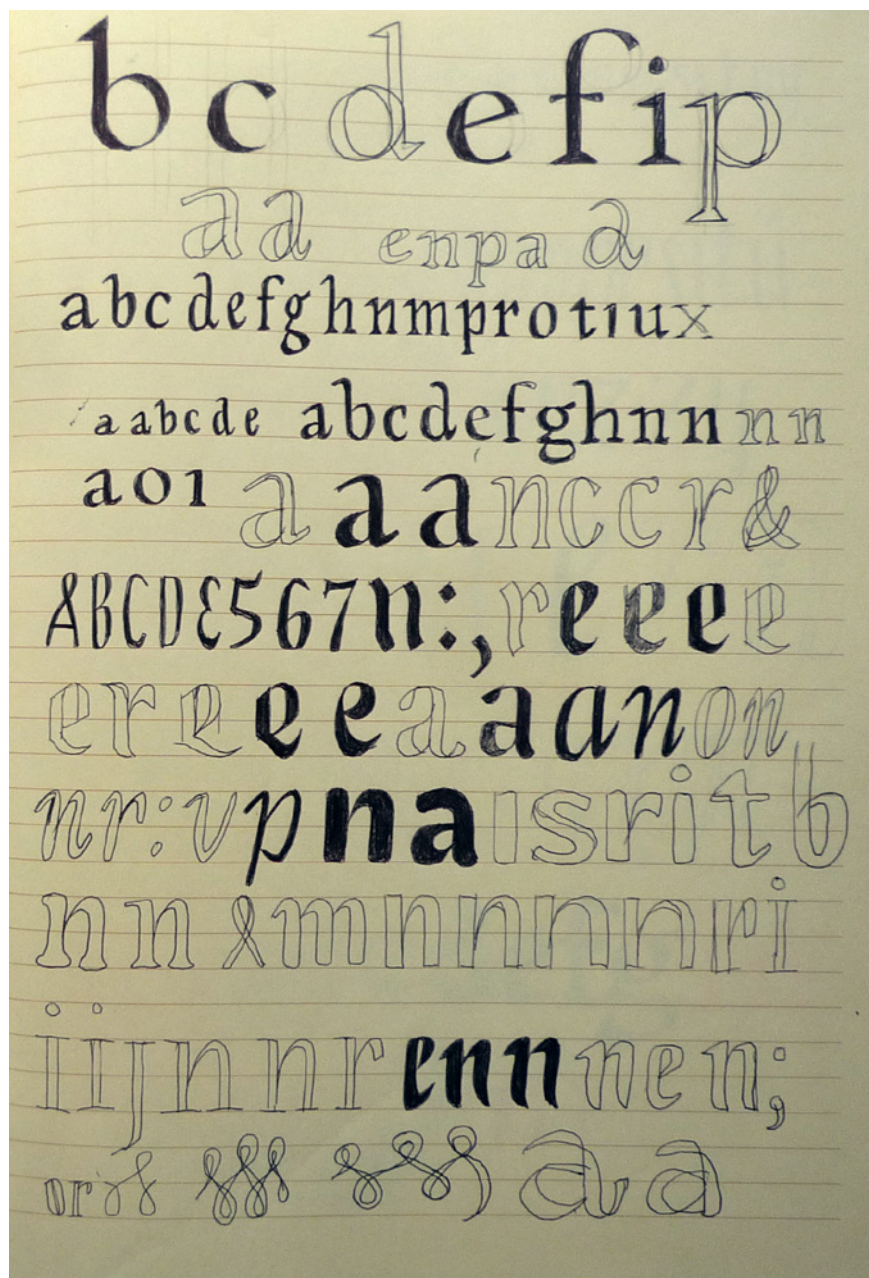 bcdefip
aa enpa a
abcdefghnmprotıux
aabcde abcdefghnnnn
ao1 aaanccr&
ABCDE567n:,reeee
ereeeaaanon
nr:vpnaısritb
nn &mnnnnnri
iijnnrennnen;
or aa